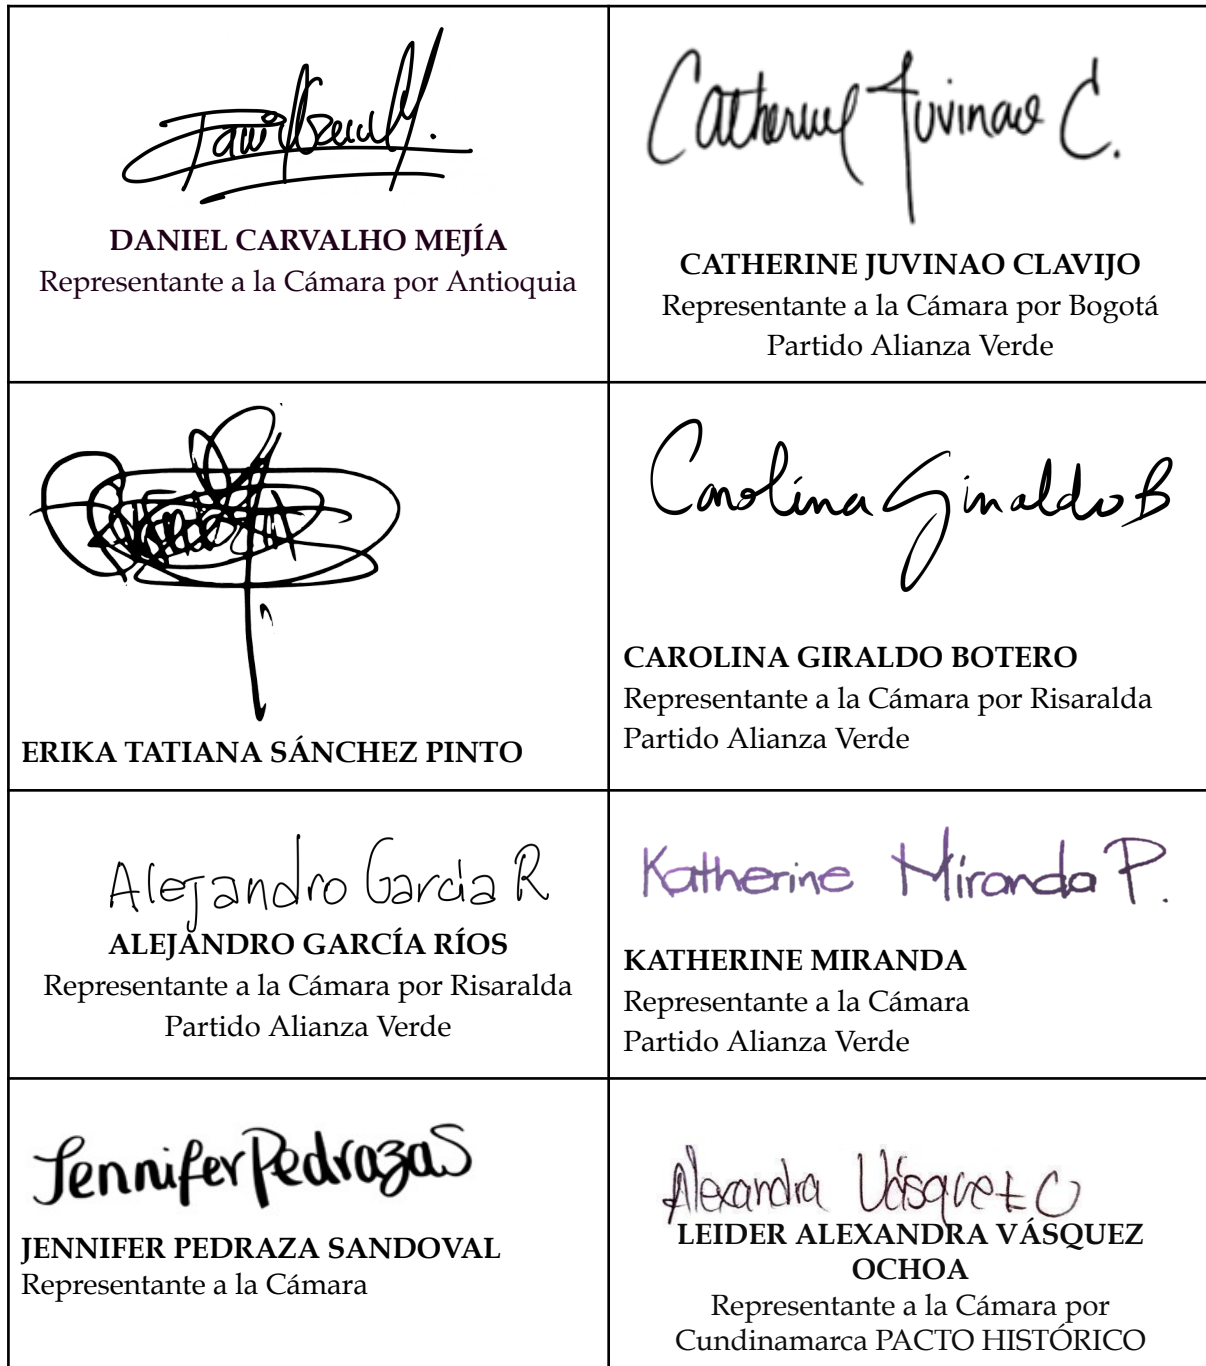 DANIEL CARVALHO MEJÍA
Representante a la Cámara por Antioquia
Catherine Juvinao C.
CATHERINE JUVINAO CLAVIJO
Representante a la Cámara por Bogotá
Partido Alianza Verde
ERIKA TATIANA SÁNCHEZ PINTO
Carolina Giraldo B
CAROLINA GIRALDO BOTERO
Representante a la Cámara por Risaralda
Partido Alianza Verde
Alejandro García R
ALEJANDRO GARCÍA RÍOS
Representante a la Cámara por Risaralda
Partido Alianza Verde
Katherine Miranda P.
KATHERINE MIRANDA
Representante a la Cámara
Partido Alianza Verde
Jennifer Pedraza S
JENNIFER PEDRAZA SANDOVAL
Representante a la Cámara
Alexandra Vásquez O
LEIDER ALEXANDRA VÁSQUEZ
OCHOA
Representante a la Cámara por
Cundinamarca PACTO HISTÓRICO